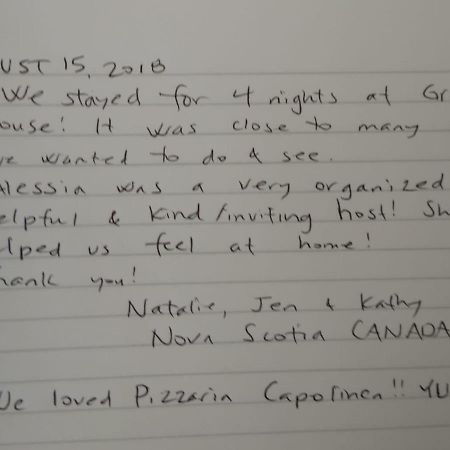 UST 15, 2018
We stayed for 4 nights at Gr
ouse! It was close to many
e wanted to do & see.
lessia was a very organized
elpful & kind/inviting host! Sh
lped us feel at home!
hank you!
Natalie, Jen & Kathy
Nova Scotia CANADA
We loved Pizzaria Capolinea!! YU